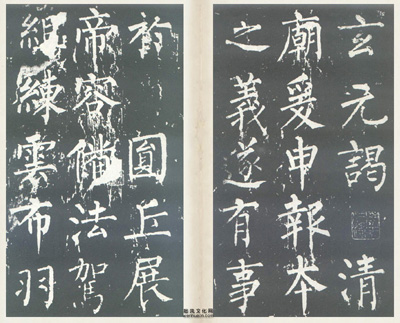 玄元謁清
廟爰申報本
之義遂有事
於圓丘展
帝容備法駕
組練雲布羽